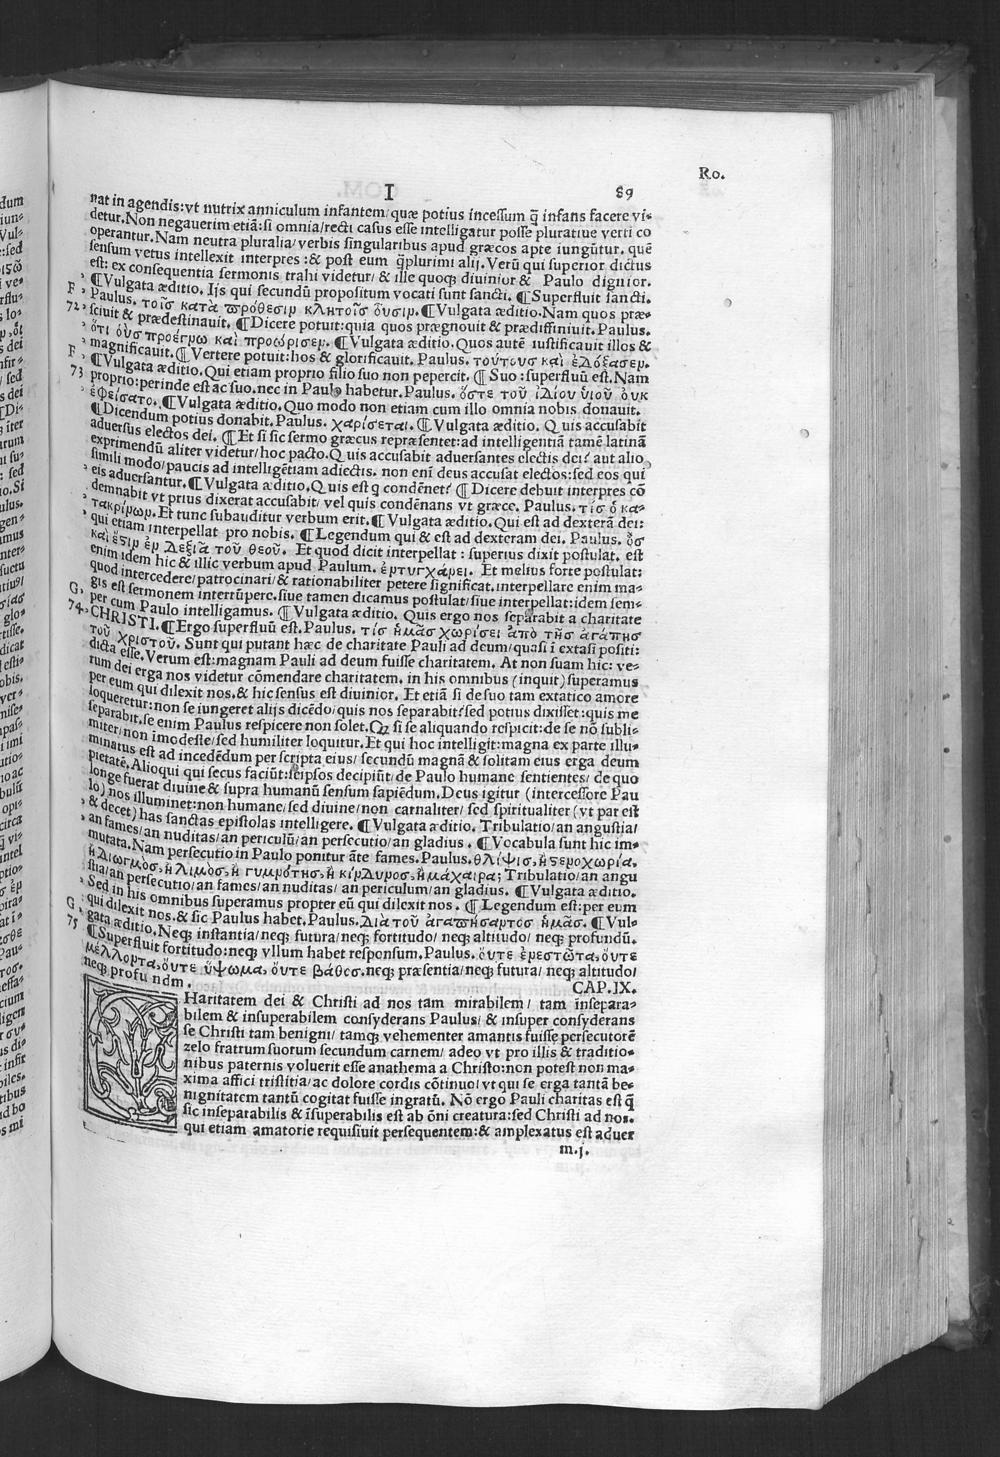 Ro.
I 89
nat in agendis:vt nutrix anniculum infantem/quæ potius incessum q̃ infans facere vi-
detur.Non negauerim etiã:si omnia/recti casus esse intelligatur posse pluratiue verti co
operantur.Nam neutra pluralia/verbis singularibus apud græcos apte iungũtur. quẽ
sensum vetus intellexit interpres:& post eum q̃plurimi alij.Verũ qui superior dictus
est: ex consequentia sermonis trahi videtur/& ille quoq; diuinior & Paulo dignior.
¶Vulgata æditio. Ijs qui secundũ propositum vocati sunt sancti. ¶Superfluit sancti.
F Paulus. τοῖσ κατὰ πρόθεσιν κλητοῖσ ὀυσιν. ¶Vulgata æditio.Nam quos præ-
72 sciuit & prædestinauit. ¶Dicere potuit:quia quos prægnouit & prædiffiniuit. Paulus.
ὅτι ὁυσ προέγνω καὶ προώρισεν. ¶Vulgata æditio.Quos autẽ iustificauit illos &
magnificauit.¶Vertere potuit:hos & glorificauit. Paulus. τούτουσ καὶ ἐδόξασεν.
F ¶Vulgata æditio.Qui etiam proprio filio suo non pepercit. ¶Suo:superfluũ est.Nam
73 proprio:perinde est ac suo.nec in Paulo habetur.Paulus. ὅστε τοῦ ἰδίου ὑιοῦ ὀυκ
ἐφείσατο. ¶Vulgata æditio.Quo modo non etiam cum illo omnia nobis donauit.
¶Dicendum potius donabit.Paulus. χαρίσεται. ¶Vulgata æditio. Quis accusabit
aduersus electos dei. ¶Et si sic sermo græcus repræsentet:ad intelligentiã tamẽ latinã
exprimendũ aliter videtur/hoc pacto.Quis accusabit aduersantes electis dei? aut alio
simili modo/paucis ad intelligẽtiam adiectis. non eni̇̃ deus accusat electos:sed eos qui
eis aduersantur.¶Vulgata æditio.Quis est q condẽnet? ¶Dicere debuit interpres cõ
demnabit vt prius dixerat accusabit/vel quis condẽnans vt græce. Paulus. τίσ ὁ κα-
τακρίνων.Et tunc subauditur verbum erit.¶Vulgata æditio.Qui est ad dexterã dei:
qui etiam interpellat pro nobis. ¶Legendum qui & est ad dexteram dei. Paulus. ὅσ
καὶ ἔστιν ἐν δεξιᾶ τοῦ θεοῦ. Et quod dicit interpellat:superius dixit postulat. est
enim idem hic & illic verbum apud Paulum. ἐντυγχάνει. Et melius forte postulat:
quod intercedere/patrocinari/& rationabiliter petere significat.interpellare enim ma-
gis est sermonem interrũpere.siue tamen dicamus postulat/siue interpellat:idem sem-
G per cum Paulo intelligamus. ¶Vulgata æditio. Quis ergo nos separabit a charitate
74 CHRISTI.¶Ergo superfluũ est.Paulus. τίσ ἡμᾶσ χωρίσει ἀπὸ τῆσ ἀγάπησ
τοῦ χριστοῦ. Sunt qui putant hæc de charitate Pauli ad deum/quasi ĩ extasi positi:
dicta esse.Verum est:magnam Pauli ad deum fuisse charitatem. At non suam hic: ve-
rum dei erga nos videtur cõmendare charitatem. in his omnibus (inquit) superamus
per eum qui dilexit nos.& hic sensus est diuinior. Et etiã si de suo tam extatico amore
loqueretur:non se iungeret alijs dicẽdo/quis nos separabit?sed potius dixisset:quis me
separabit.se enim Paulus respicere non solet.Qz si se aliquando respicit:de se nõ subli-
miter/non imodeste/sed humiliter loquitur.Et qui hoc intelligit:magna ex parte illu-
minatus est ad incedẽdum per scripta eius/secundũ magnã & solitam eius erga deum
pietatẽ.Alioqui qui secus faciũt:seipsos decipiũt/de Paulo humane sentientes/de quo
longe fuerat diuine & supra humanũ sensum sapiẽdum.Deus igitur (intercessore Pau
lo) nos illuminet:non humane/sed diuine/non carnaliter/sed spiritualiter (vt par est
& decet) has sanctas epistolas intelligere. ¶Vulgata æditio. Tribulatio/an angustia/
an fames/an nuditas/an periculũ/an persecutio/an gladius. ¶Vocabula sunt hic im-
mutata.Nam persecutio in Paulo ponitur ãte fames.Paulus.θλίψισ,ἢ στενοχωρία,
ἢ διωγμὸσ,ἢ λιμὸσ,ἢ γυμνότησ,ἢ κίνδυνοσ,ἢ μάχαιρα; Tribulatio/an angu
stia/an persecutio/an fames/an nuditas/an periculum/an gladius. ¶Vulgata æditio.
Sed in his omnibus superamus propter eũ qui dilexit nos. ¶Legendum est:per eum
G qui dilexit nos.& sic Paulus habet.Paulus.διὰ τοῦ ἀγαπήσαντοσ ἡμᾶσ. ¶Vul-
75 gata æditio.Neq; instantia/neq; futura/neq; fortitudo/neq; altitudo/neq; profundũ.
¶Superfluit fortitudo:neq; vllum habet responsum.Paulus. ὄυτε ἐνεστῶτα,ὄυτε
μέλλοντα,ὄυτε ὕψωμα,ὄυτε βάθοσ.neq; præsentia/neq; futura/neq; altitudo/
neq; profundm. CAP.IX.
Haritatem dei & Christi ad nos tam mirabilem/ tam ĩnsepara-
bilem & insuperabilem consyderans Paulus/& insuper consyderans
se Christi tam benigni/tamq; vehementer amantis fuisse persecutorẽ
zelo fratrum suorum secundum carnem/adeo vt pro illis & traditio-
nibus paternis voluerit esse anathema a Christo:non potest non ma-
xima affici tristitia/ac dolore cordis cõtinuo/vt qui se erga tantã be-
nignitatem tantũ cogitat fuisse ingratũ. Nõ ergo Pauli charitas est q̃
sic inseparabilis & ĩsuperabilis est ab õni creatura:sed Christi ad nos.
qui etiam amatorie requisiuit persequentem:& amplexatus est aduer
m.j.